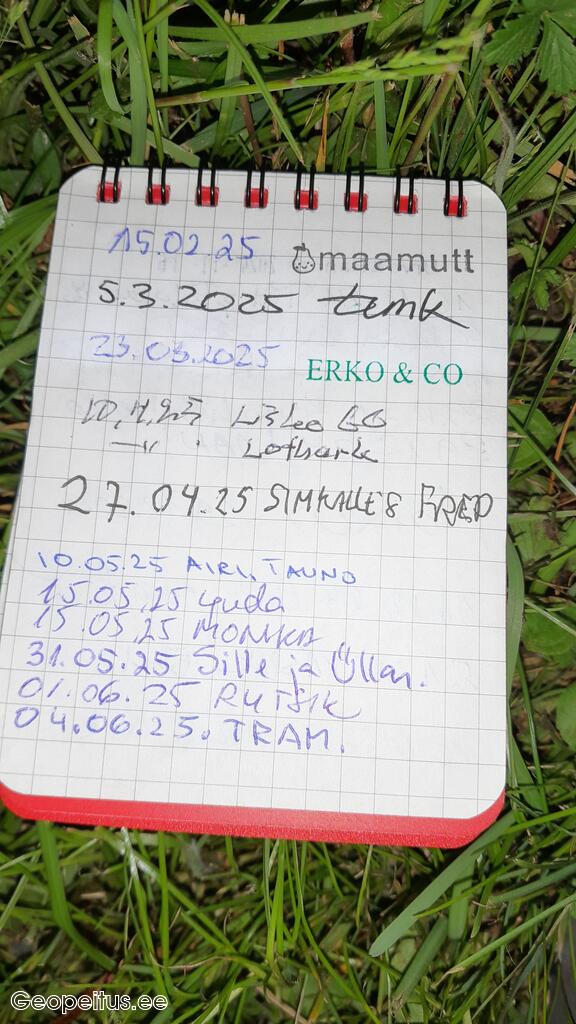 15.02.25 maamutt
5.3.2025 temk
23.03.2025 ERKO & CO
10.4.25
27.04.25 SIMKALLE & FRED
10.05.25 AIRI, TAUNO
15.05.25 yuda
15.05.25 MONIKA
31.05.25 Sille ja Üllar.
01.06.25 RUTSIK
04.06.25. TRAM.
Geopeitus.ee